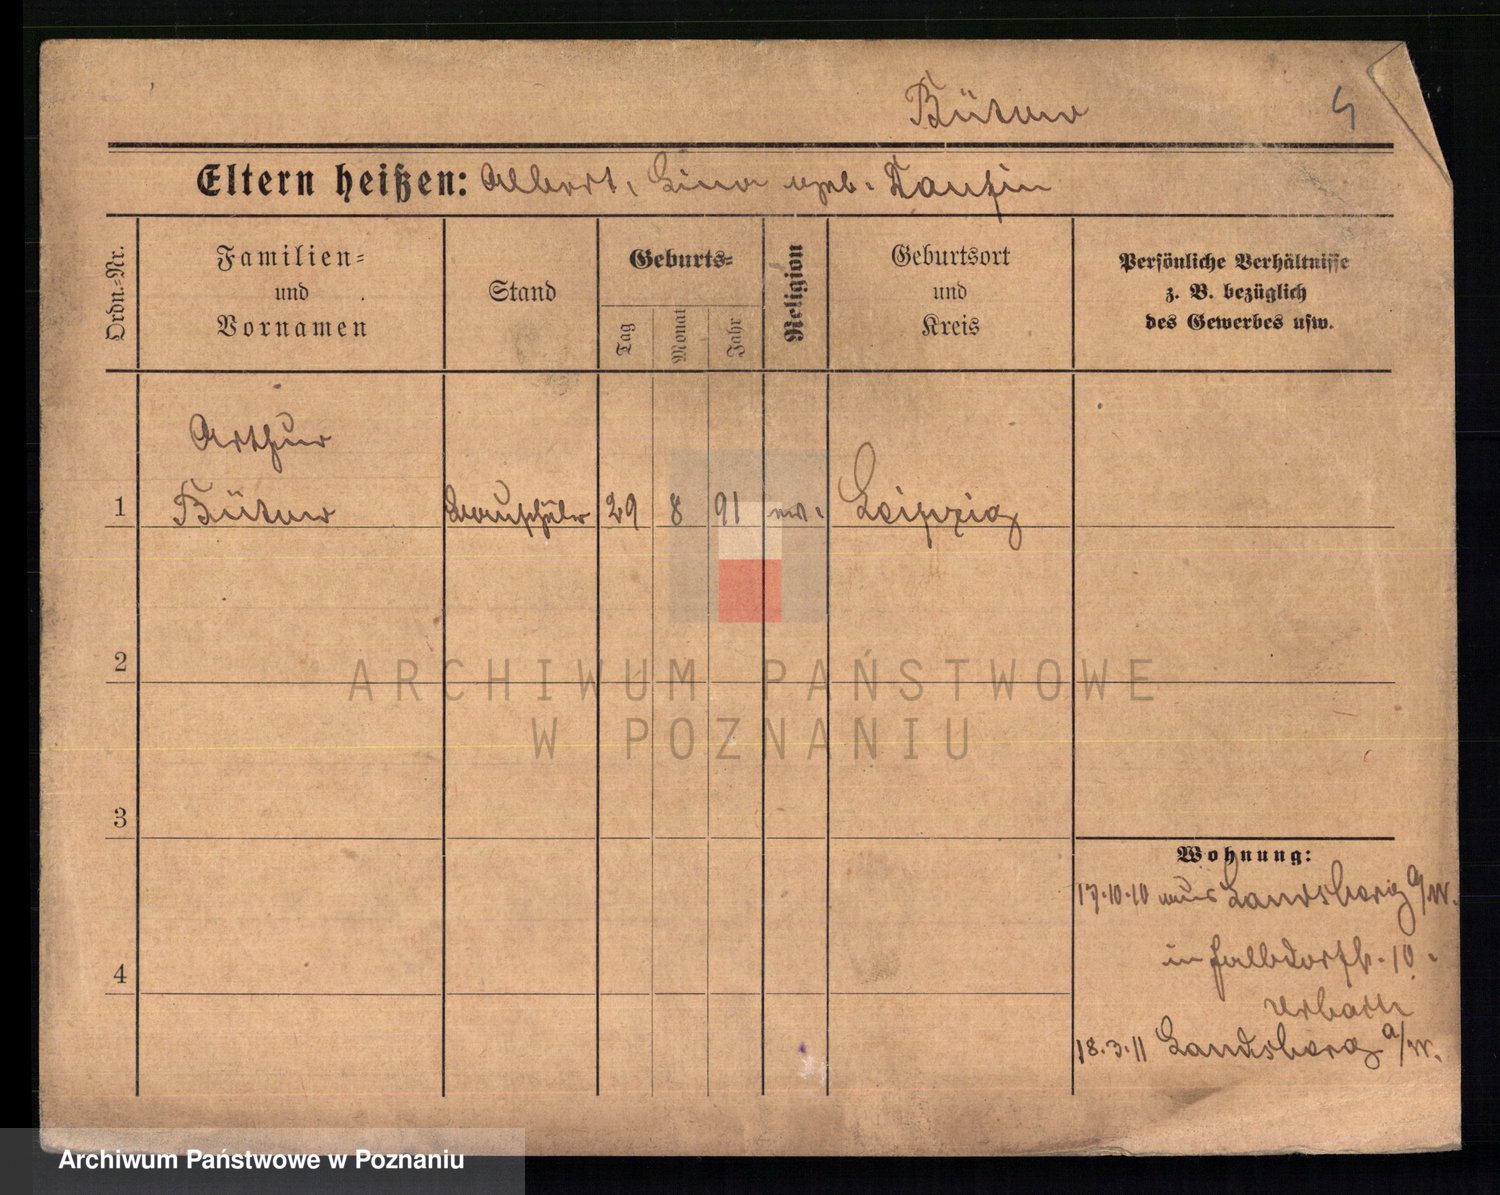 Bütow
Eltern heißen: Albert, Lina geb. Tanzin
Ordn.=Nr.
Familien=
und
Vornamen
Stand
Geburts=
Tag
Monat
Jahr
Religion
Geburtsort
und
Kreis
Persönliche Verhältnisse
z. B. bezüglich
des Gewerbes usw.
Arthur
1 Bütow Bauschüler 29 8 91 ev. Leipzig
2
3
4
Wohnung:
17.10.10 aus Landsberg a/W.
in 10.
Urbach
18.3.11 Landsberg a/W.
ARCHIWUM PAŃSTWOWE
W POZNANIU
Archiwum Państwowe w Poznaniu